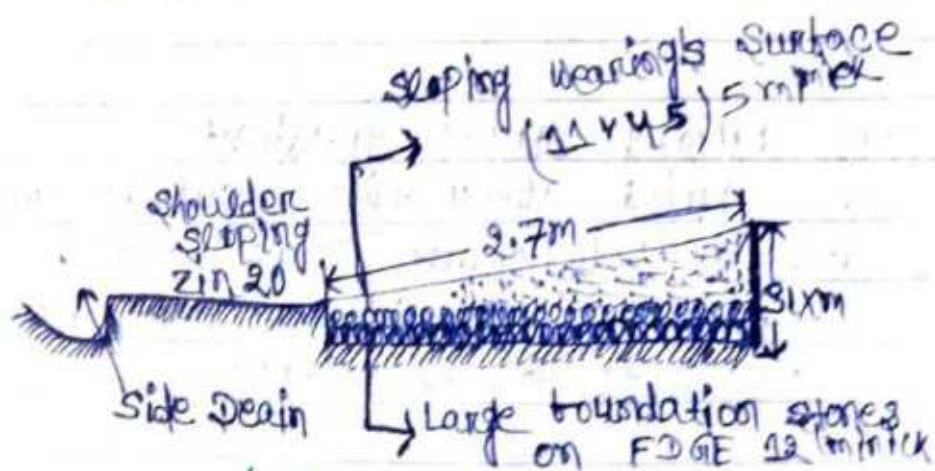 sloping wearing's Surface
(11 v 45) 5 mmick
Shoulder
sloping
zin 20
2.7m
Side Deain
Large foundation stones
on FDGE 12 mmick